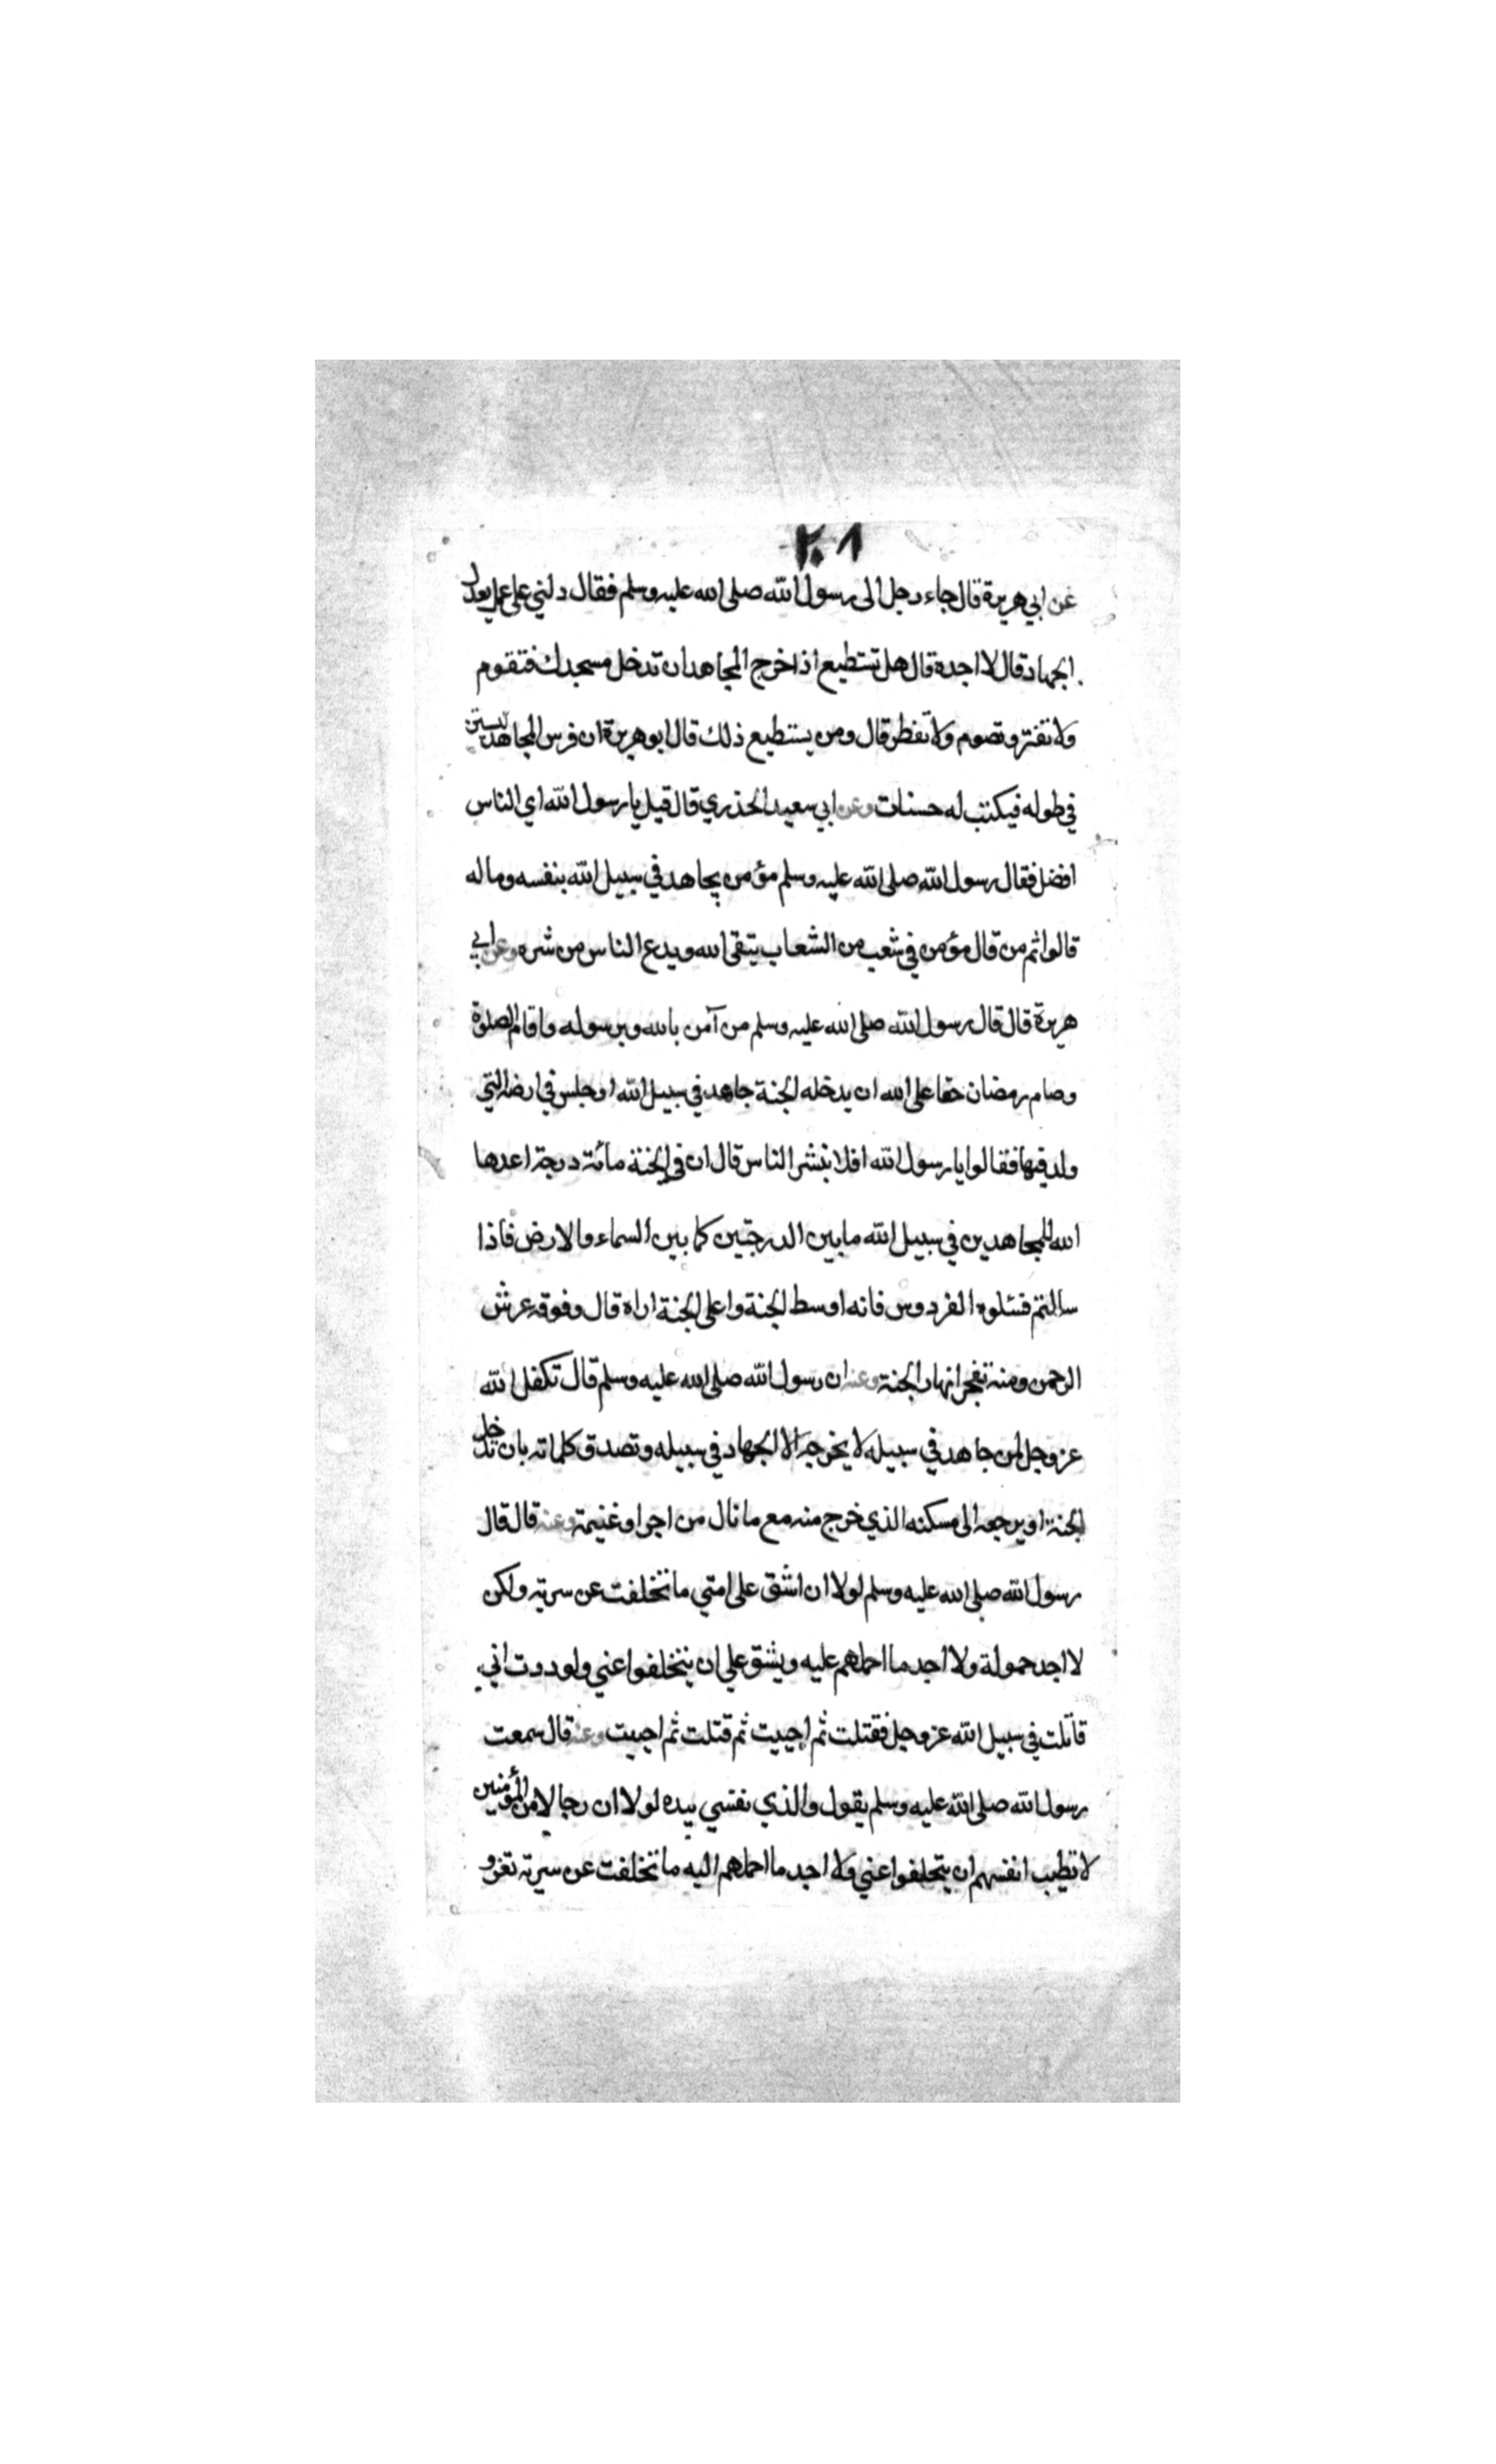 ٢٠٨
عن ابي هريرة قال جاء رجل الى رسول الله صلى الله عليه وسلم فقال دلني على عمل يعدل
الجهاد قال لا اجده قال هل تستطيع اذا خرج المجاهد ان تدخل مسجدك فتقوم
ولا تفتر وتصوم ولا تفطر قال ومن يستطيع ذلك قال ابو هريرة ان فرس المجاهد ليستن
في طوله فيكتب له حسنات وعن ابي سعيد الخذري قال قيل يا رسول الله اي الناس
افضل فقال رسول الله صلى الله عليه وسلم مؤمن يجاهد في سبيل الله بنفسه وماله
قالوا ثم من قال مؤمن في شعب من الشعاب يتقى الله ويدع الناس من شره وعن ابي
هريرة قال قال رسول الله صلى الله عليه وسلم من آمن بالله وبرسوله واقام الصلوة
وصام رمضان حقا على الله ان يدخله الجنة جاهد في سبيل الله او جلس في ارضه التي
ولد فيها فقالوا يا رسول الله افلا نبشر الناس قال ان في الجنة مائة درجة اعدها
الله للمجاهدين في سبيل الله ما بين الدرجتين كما بين السماء والارض فاذا
سالتم فسئلوه الفردوس فانه اوسط الجنة واعلى الجنة اراه قال وفوقه عرش
الرحمن ومنه تفجر انهار الجنة وعنه ان رسول الله صلى الله عليه وسلم قال تكفل الله
عز وجل لمن جاهد في سبيله لا يخرجه الا الجهاد في سبيله وتصدق كلماته بان يدخله
الجنة او يرجعه الى مسكنه الذي خرج منه مع ما نال من اجر او غنيمة وعنه قال قال
رسول الله صلى الله عليه وسلم لولا ان اشق على امتي ما تخلفت عن سرية ولكن
لا اجد حمولة ولا اجد ما احملهم عليه ويشق علي ان يتخلفوا عني ولوددت اني
قاتلت في سبيل الله عز وجل فقتلت ثم احييت ثم قتلت ثم احييت وعنه قال سمعت
رسول الله صلى الله عليه وسلم يقول والذي نفسي بيده لولا ان رجالا من المؤمنين
لا تطيب انفسهم ان يتخلفوا عني ولا اجد ما احملهم اليه ما تخلفت عن سرية تغزو